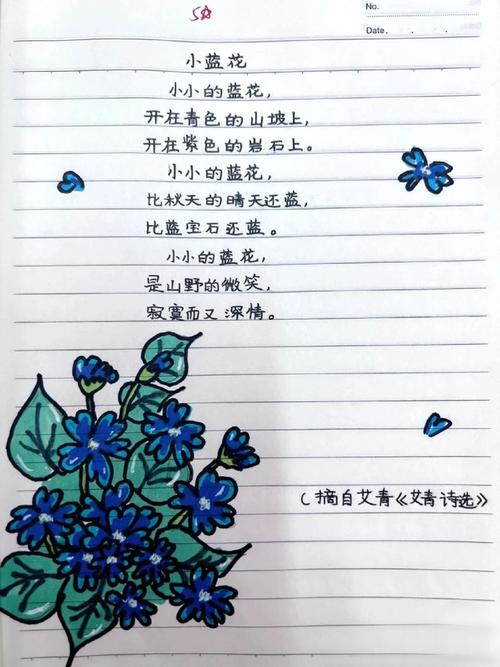 No.
Date.
小蓝花
小小的蓝花，
开在青色的山坡上，
开在紫色的岩石上。
小小的蓝花，
比秋天的晴天还蓝，
比蓝宝石还蓝。
小小的蓝花，
是山野的微笑，
寂寞而又深情。
（摘自艾青《艾青诗选》